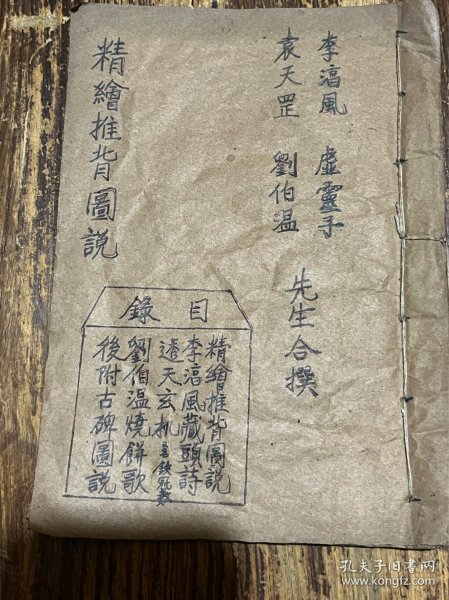 李湻風　虛靈子
袁天罡　劉伯溫
先生合撰
精繪推背圖説
目錄
精繪推背圖説
李湻風藏頭詩
透天玄机
劉伯溫燒餅歌
後附古碑圖説
孔夫子旧书网
www.kongfz.com